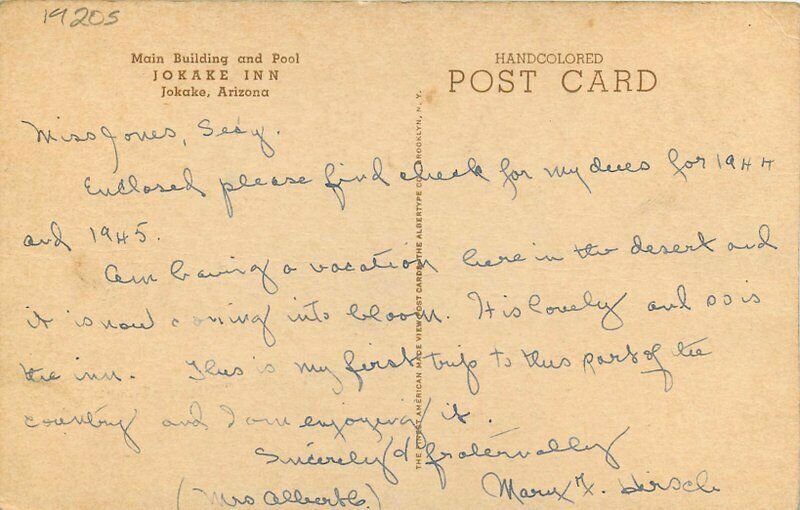 1920s
Main Building and Pool
JOKAKE INN
Jokake, Arizona
HANDCOLORED
POST CARD
THE FINEST AMERICAN MADE VIEW POST CARDS THE ALBERTYPE CO., BROOKLYN, N. Y.
Miss Jones, Secy.
Enclosed please find check for my dues for 1944
and 1945.
Am having a vacation here in the desert and
it is now coming into bloom. It is lovely and so is
the inn. This is my first trip to this part of the
country and I am enjoying it.
Sincerely & fraternally
(Mrs Albert C.) Mary F. Hirsch